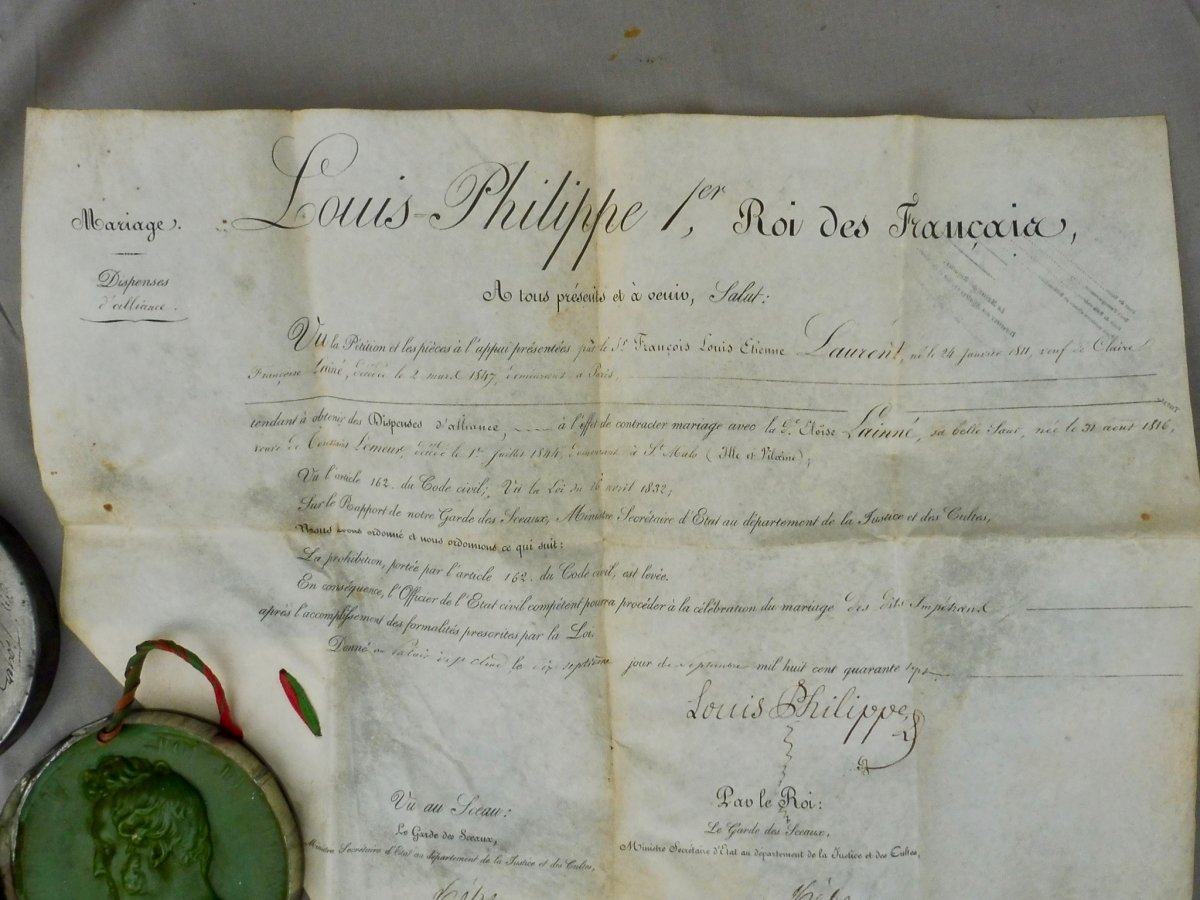 Mariage.
Dispenses
d'alliance.
Louis-Philippe 1er, Roi des Français,
A tous présents et à venir, Salut:
Vu la Pétition et les pièces à l'appui présentées par le Sr François Louis Etienne Laurent, né le 24 janvier 1811, veuf de Claire
Françoise Lainé, décédée le 2 mars 1847, demeurant à Paris,
tendant à obtenir des Dispenses d'alliance, à l'effet de contracter mariage avec la De Eloïse Lainné, sa belle Sœur, née le 31 août 1816,
veuve de Lemeur, décédé le 1er Juillet 1844, demeurant à St Malo (Ille et Vilaine);
Vu l'article 162. du Code civil; Vu la Loi du 16 avril 1832;
Sur le Rapport de notre Garde des Sceaux, Ministre Secrétaire d'Etat au département de la Justice et des Cultes,
Nous avons ordonné et nous ordonnons ce qui suit:
La prohibition, portée par l'article 162. du Code civil, est levée.
En conséquence, l'Officier de l'Etat civil compétent pourra procéder à la célébration du mariage des dits Impétrans
après l'accomplissement des formalités prescrites par la Loi.
Donné au Palais de St Cloud le dix septième jour de septembre mil huit cent quarante sept.
Louis Philippe
Vu au Sceau:
Le Garde des Sceaux,
Ministre Secrétaire d'Etat au département de la Justice et des Cultes,
Par le Roi:
Le Garde des Sceaux,
Ministre Secrétaire d'Etat au département de la Justice et des Cultes,